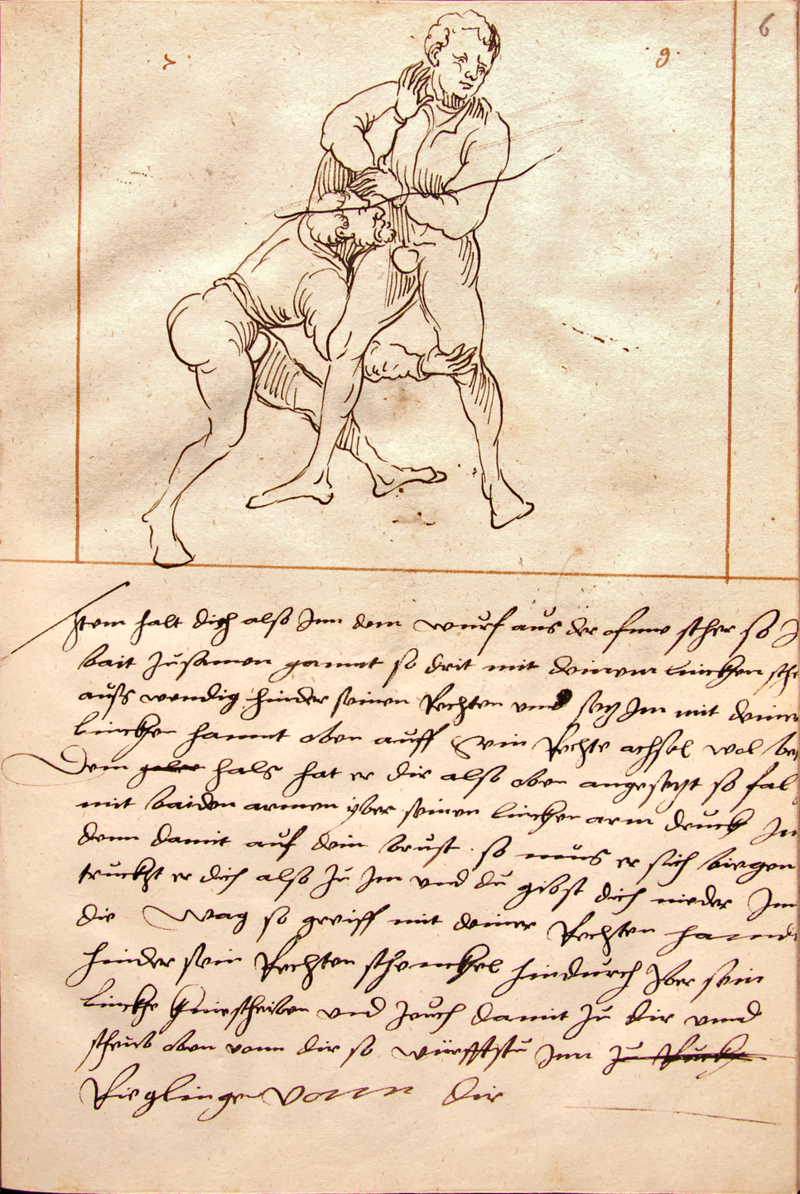 7 9 6
Item halt dich also Inn dem wurf aus der ofnnen scher so I
bait zusamen gannt so drit mit deinem lincken sche
auss wendig hinder seinen Rechten vnnd setz Im mit deiner
lincken hannt oben auff sein Rechte achsel wol bey
Dem hals hat er dir also oben angesetzt so fal
mit baiden armen yber seinen lincken arm druck In
denn damit auf dein brust so mus er sich biegen
truckht er dich also zu Im vnd du gibst dich nieder Inn
die Wag so greiff mit deiner Rechten hannd
hinder sein Rechten schenckhel hindurch yber sein
linckhe kniescheiben vnd zeuch damit zu dir vnnd
scheub oben vonn dir so würffstu Inn zu Ruckh
Rieglingen Vonn dir